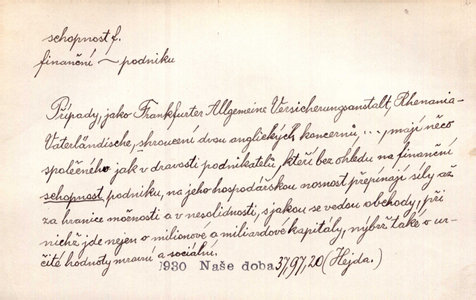 schopnost f.
finanční ~ podniku
Případy, jako Frankfurter Allgemeine Versicherungsanstalt, Rhenania-
Vaterländische, shroucení dvou anglických koncernů, ..., mají něco
společného jak v dravosti podnikatelů, kteří bez ohledu na finanční
schopnost podniku, na jeho hospodářskou nosnost přepínají síly až
za hranice možnosti a v nesolidnosti, s jakou se vedou obchody, při
nichž jde nejen o milionové a miliardové kapitály, nýbrž také o ur-
čité hodnoty mravní a sociální.
1930 Naše doba 37,97,20 (Hejda.)